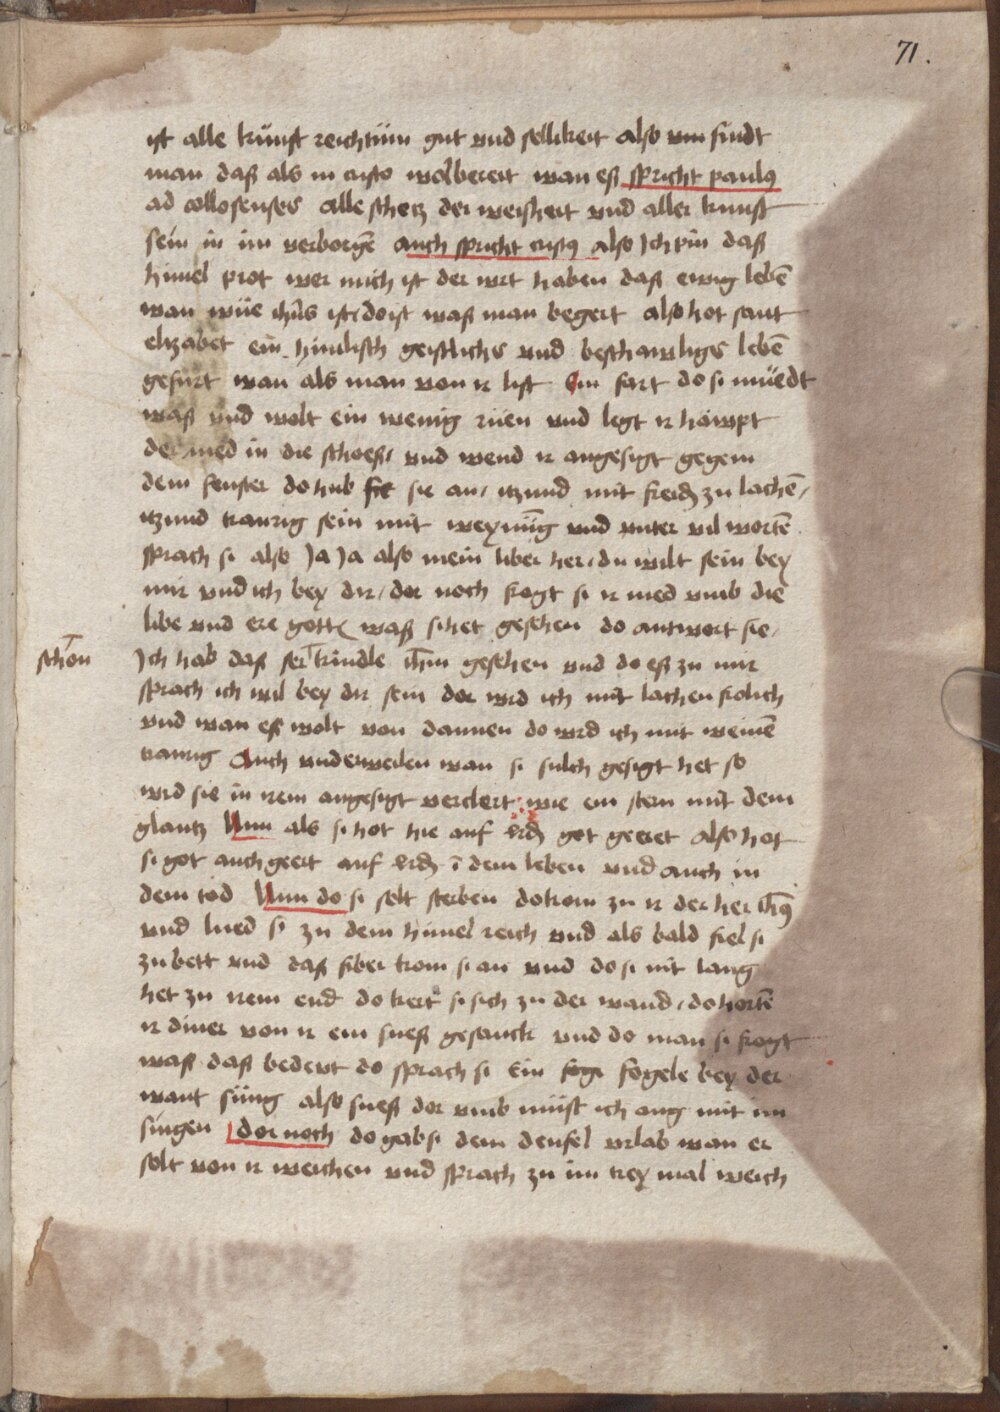 71.
ist alle kunst reichtum gut vnd sellikeit also vin findt
man daß als in cristo wolbereit wan eß spricht paulus
ad collosenses alle schetz der weisheit vnd aller kunst
sein in im verborgē auch spricht cristus also Ich pin daß
himel prot wer mich ist der wrt haben daß ewig lebē
wan wue ihūs ist / do ist waß man begert also hot sant
elizabet ein himlisch geistlichs vnd beschawligs lebē
gefurt wan als man von ir list Ein fart do si muedt
waß vnd wolt ein wenig ruen vnd legt ir hawpt
der med in die schoeß / vnd wend ir angesigt gegem
dem fenster do hub sie an / itzund mit freidē zu lachē /
itzund traurig sein mit weynūg vnd vnter vil wortē
sprach si also Ja Ja also mein liber her / du wilt sein bey
mir vnd ich bey dir / dor noch fregt si ir med vmb die
libe vnd ere gottes waß si het gesehen do antwort sie /
schōn
Ich hab daß kindle ihm gesehen vnd do eß zu mir
sprach ich wil bey dir sein dor wrd ich mit lachen frolich
vnd wan eß wolt von dannen do wrd ich mit weinē
traurig Auch vnderweilen wan si sulch gesigt het so
wrd sie in irem angesigt verclert wie ein stern mit dem
glantz Nun als si hot hie auf erdē got geeret also hot
si got auch geert auf erdē ī dem leben vnd auch in
dem tod Nun do si solt sterben do kom zu ir der her ihūs
vnd lued si zu dem himel reich vnd als bald fiel si
zu bett vnd daß fiber kom si an vnd do si nit lang
het zu irem end do kert si sich zu der wand / do hortē
ir diner von ir ein sueß gesanck vnd do man si fragt
waß daß bedewt do sprach si Ein fogele bey der
want sung also sueß dor vmb must ich aug mit im
singen dor noch do gab si dem deufel vrlab wan er
solt von ir weichen vnd sprach zu im trey mal weich